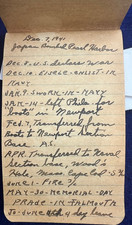 Dec. 7, 1941
Japan Bombed Pearl Harbor
DEC. 8 - U.S. declare War
DEC. 10 - ENLIST - IN
NAVY
JAN. 9. SWORN - IN - NAVY
JAN - 14 - left Phila. for
"boots" in Newport
Feb. 7, Transferred, from
Boots to Newport
Base
APR. Transferred to Naval
Woods
Hole, Mass. Cape Cod
JUNE
MAY - 30 - MEMORIAL - DAY
PRADE - IN FALMOUTH
day leave